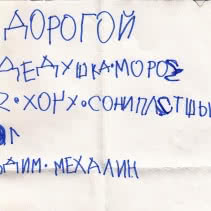 ДОРОГОЙ
ДЕДУШКА·МОРОЗ
Я·ХОЧУ·СОНИПЛСТШЫ
ВАДИМ·МЕХАЛИН